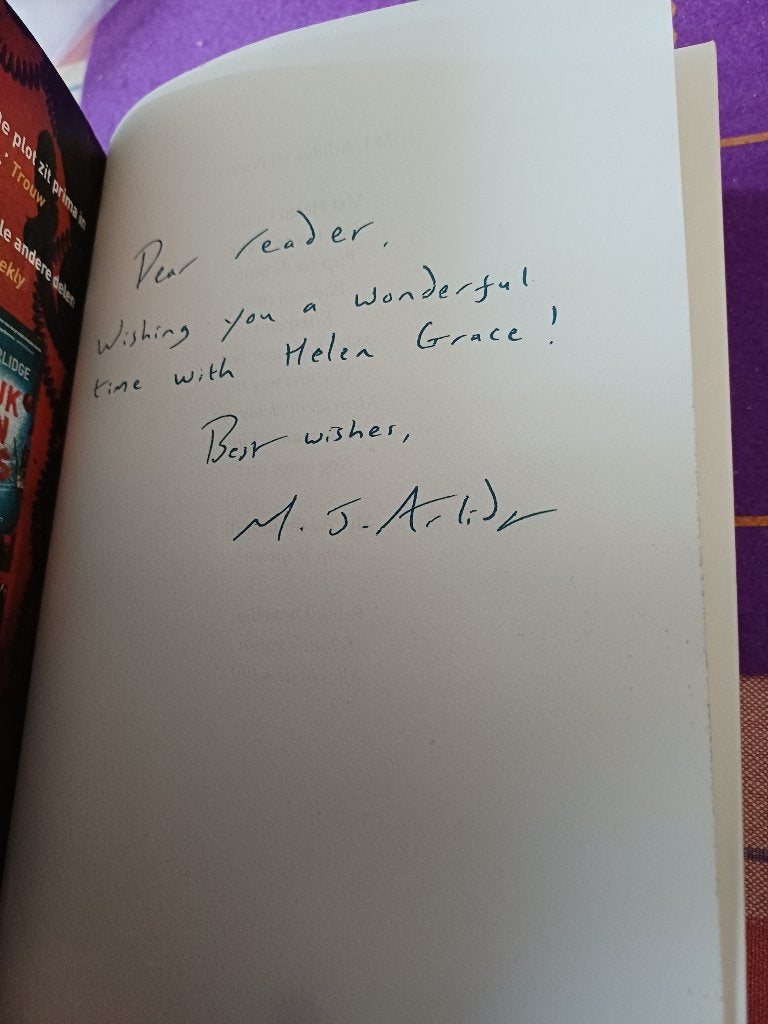 e plot zit prima in
.' Trouw
le andere delen
ekly
RLIDGE
Dear reader,
Wishing you a wonderful
time with Helen Grace!
Best wishes,
M. J. Arlidge